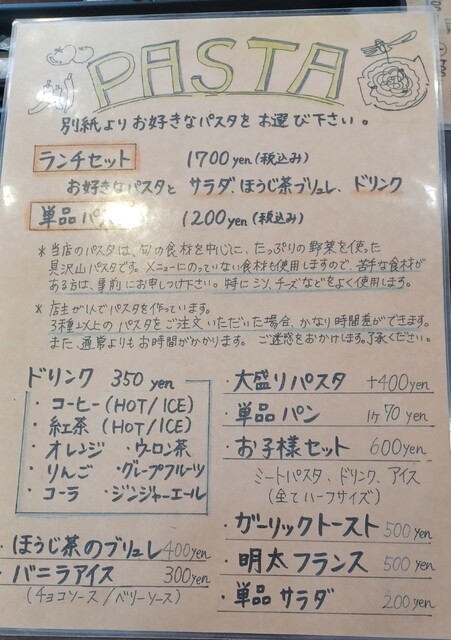 PASTA
別紙よりお好きなパスタをお選び下さい。
ランチセット 1700yen(税込み)
お好きなパスタと サラダ、ほうじ茶ブリュレ、ドリンク
単品パスタ 1200yen(税込み)
*当店のパスタは、旬の食材を中心に、たっぷりの野菜を使った
具沢山パスタです。メニューにのっていない食材も使用しますので、苦手な食材が
ある方は、事前にお申しつけ下さい。特にシソ、チーズなどをよく使用します。
*店主が1人でパスタを作っています。
3種以上のパスタをご注文いただいた場合、かなり時間差ができます。
また、通常よりもお時間がかかります。 ご迷惑をおかけします。了承ください。
ドリンク 350 yen
・コーヒー(HOT/ICE)
・紅茶 (HOT/ICE)
・オレンジ ・ウーロン茶
・りんご ・グレープフルーツ
・コーラ ・ジンジャーエール
・ほうじ茶のブリュレ 400yen
・バニラアイス 300yen
(チョコソース/ベリーソース)
・大盛りパスタ +400yen
・単品パン 1ケ 70yen
・お子様セット 600yen
ミートパスタ、ドリンク、アイス
(全てハーフサイズ)
・ガーリックトースト 500yen
・明太フランス 500yen
・単品サラダ 200yen